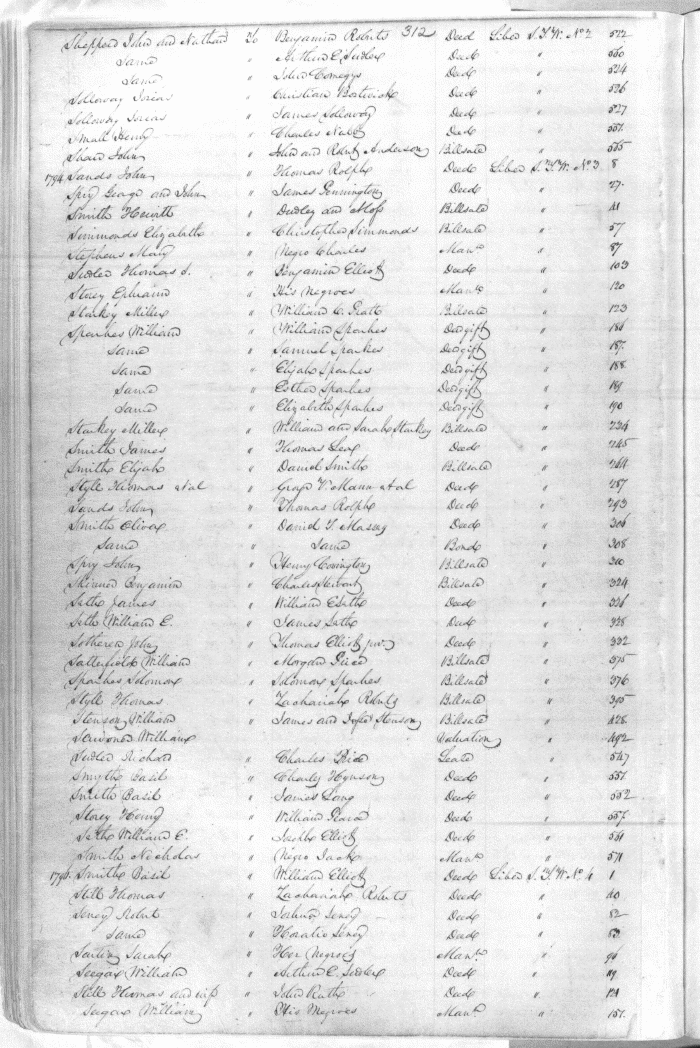 Sheppard John and Nathan To Benjamin Roberts 312 Deed Liber S.T.W. No 2 522
Same " Arthur E. Sudler Deed " 560
Same " John Comegys Deed " 524
Solloway Josias " Christian Bostwick Deed " 526
Solloway Josias " James Solloway Deed " 527
Small Henry " Charles Deed " 551
John " John and Robert Anderson Billsale " 565
1794 Sands John " Thomas Rolph Deed Liber S.T.W. No 3 8
Spry George and John " James Pennington Deed " 27
Smith " Dudley and Moss Billsale " 41
Simmonds Elizabeth " Christopher Simmonds Billsale " 57
Stephens Mary " Negro Charles Manu " 87
Sudler Thomas S. " Benjamin Elliott Deed " 103
Storey Ephraim " His Negroes Manu " 120
Starkey Miller " William C. Billsale " 123
Sparkes William " William Sparkes Deedgift " 186
Same " Samuel Sparkes Deedgift " 187
Same " Elijah Sparkes Deedgift " 188
Same " Esther Sparkes Deedgift " 189
Same " Elizabeth Sparkes Deedgift " 190
Starkey Miller " William and Sarah Starkey Billsale " 234
Smith James " Thomas Deed " 245
Smith Elijah " Daniel Smith Billsale " 264
Style Thomas et al " V. Mann et al Deed " 287
Sands John " Thomas Rolph Deed " 293
Smith Oliver " Daniel T. Massey Deed " 306
Same " Same Bond " 308
Spry John " Henry Covington Billsale " 310
Skinner Benjamin " Charles Billsale " 324
Seth James " William E Seth Deed " 326
Seth William E. " James Seth Deed " 328
Sotheren John " Thomas Elliott junr Deed " 332
Satterfield William " Morgan Price Billsale " 375
Sparkes Solomon " Solomon Sparkes Billsale " 376
Style Thomas " Zachariah Roberts Billsale " 395
Stenson William " James and Stenson Billsale " 428
Scrivener William Valuation " 492
Sudler Richard " Charles Price Lease " 547
Smyth Basil " Charles Hynson Deed " 551
Smith Basil " James Long Deed " 552
Storey Henry " William Deed " 557
Seth William E. " Jacob Elliott Deed " 561
Smith Nicholas " Negro Jack Manu " 571
Smith Basil " William Elliott Deed Liber S.T.W. No 4 1
Still Thomas " Zachariah Roberts Deed " 40
Seney Robert " Joshua Seney Deed " 52
Same " Horatio Seney Deed " 53
Sarah " Her Negroes Manu " 96
Seegar William " Arthur E. Sudler Deed " 119
Still Thomas and wife " John Ruth Deed " 121
Seegar William " His Negroes Manu " 151